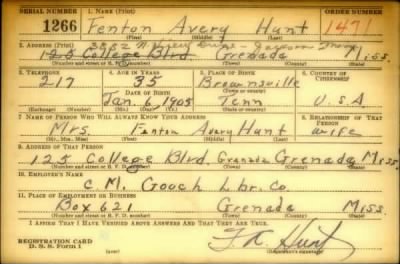 SERIAL NUMBER 1. NAME (Print) ORDER NUMBER
1266 Fenton Avery Hunt 1471
(First) (Middle) (Last)
2. ADDRESS (Print)
125 College Blvd. Grenada Miss.
(Number and street or R. F. D. number) (Town) (County) (State)
3. TELEPHONE 4. AGE IN YEARS 5. PLACE OF BIRTH 6. COUNTRY OF CITIZENSHIP
217 35 Brownsville
DATE OF BIRTH (Town or county)
Jan. 6, 1905 Tenn U.S.A
(Exchange) (Number) (Mo.) (Day) (Yr.) (State or country)
7. NAME OF PERSON WHO WILL ALWAYS KNOW YOUR ADDRESS 8. RELATIONSHIP OF THAT PERSON
Mrs. Fenton Avery Hunt wife
(Mr., Mrs., Miss) (First) (Middle) (Last)
9. ADDRESS OF THAT PERSON
125 College Blvd. Grenada Grenada Miss.
(Number and street or R. F. D. number) (Town) (County) (State)
10. EMPLOYER'S NAME
C. M. Gooch Lbr. Co.
11. PLACE OF EMPLOYMENT OR BUSINESS
Box 621 Grenada Miss.
(Number and street or R. F. D. number) (Town) (County) (State)
I AFFIRM THAT I HAVE VERIFIED ABOVE ANSWERS AND THAT THEY ARE TRUE.
REGISTRATION CARD
D. S. S. Form 1 Hunt